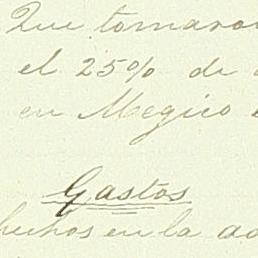 Que tomaron
el 25% de
en Megico
Gastos
hechos en la